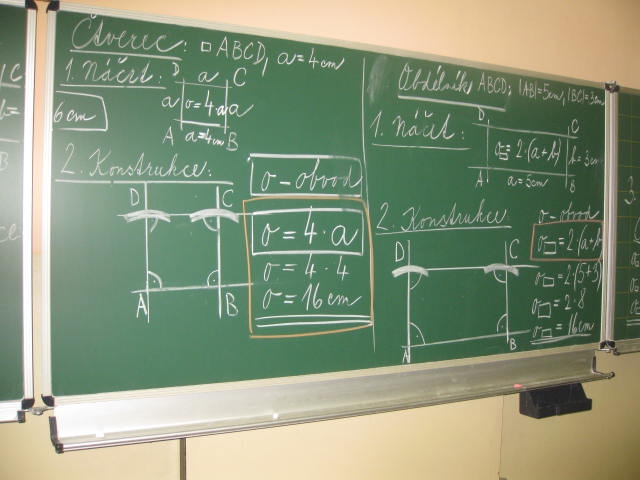 Čtverec: □ ABCD, a = 4 cm
1. Náčrt:
D a C
a o = 4·a a
A a = 4 cm B
2. Konstrukce:
D C
A B
o - obvod
o = 4 · a
o = 4 · 4
o = 16 cm
Obdélník ABCD; |AB| = 5 cm, |BC| = 3 cm
1. Náčrt:
D C
o▭ = 2·(a+b) b = 3 cm
A a = 5 cm B
2. Konstrukce:
D C
A B
o - obvod
o▭ = 2·(a+b
o▭ = 2·(5+3)
o▭ = 2·8
o▭ = 16 cm
C
6 cm
3.